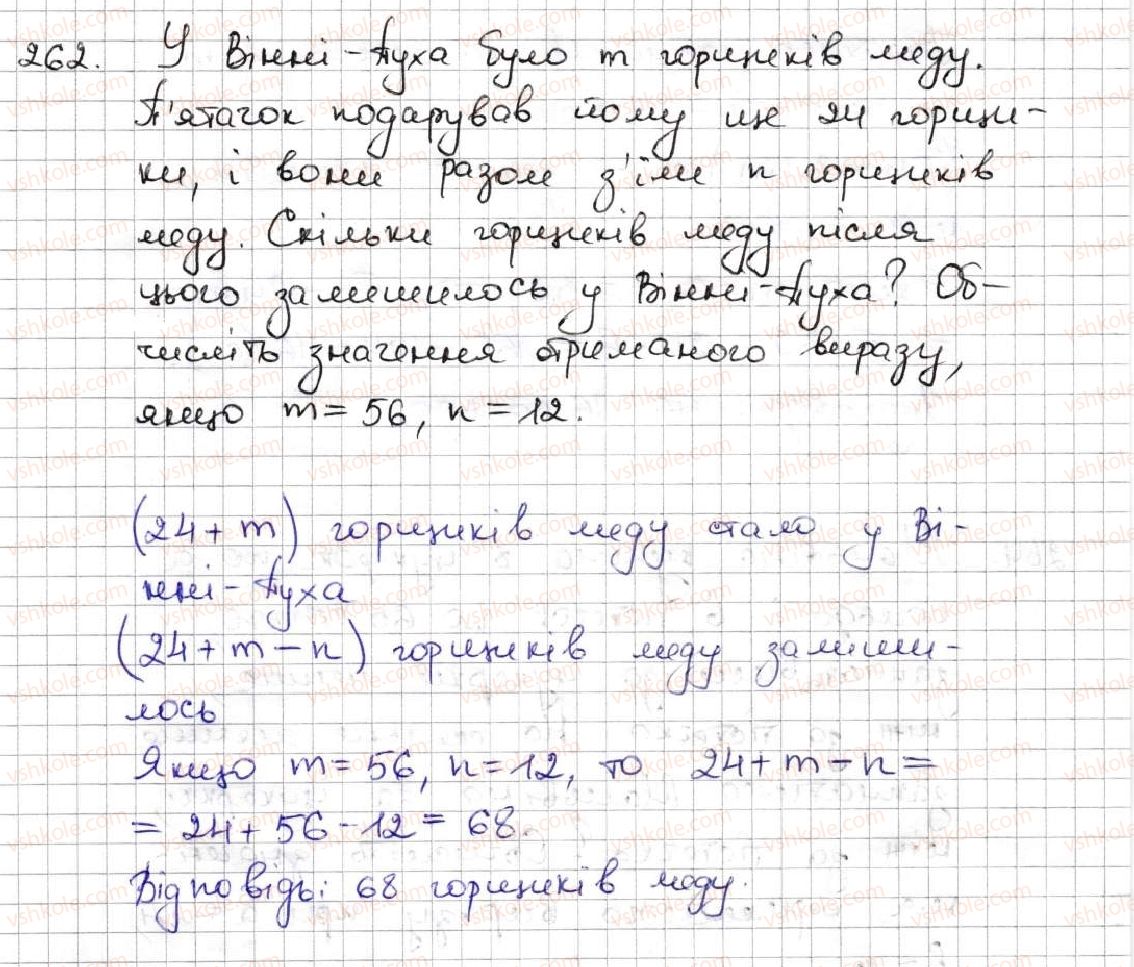 262. У Вінні-Пуха було m горщиків меду.
П'ятачок подарував йому ще 24 горщи-
ки, і вони разом з'їли n горщиків
меду. Скільки горщиків меду після
цього залишилось у Вінні-Пуха? Об-
числіть значення отриманого виразу,
якщо m = 56, n = 12.
(24 + m) горщиків меду стало у Ві-
нні-Пуха
(24 + m - n) горщиків меду заліши-
лось
Якщо m = 56, n = 12, то 24 + m - n =
= 24 + 56 - 12 = 68.
Відповідь: 68 горщиків меду.